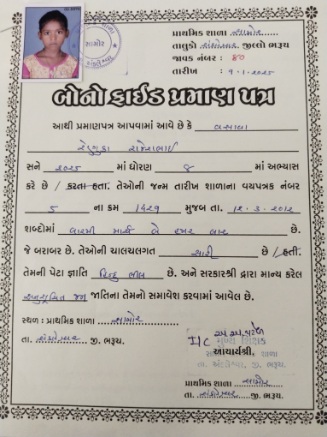 પ્રાથમિક શાળા સામોર
તાલુકો અંકલેશ્વર જીલ્લો ભરૂચ
જાવક નંબર : ૪૦
તારીખ : ૧-૧-૨૦૨૫
બોનોફાઈડ પ્રમાણ પત્ર
આથી પ્રમાણપત્ર આપવામાં આવે છે કે વસાવા
રાજેશભાઈ
સને ૨૦૨૫ માં ધોરણ ૭ માં અભ્યાસ
કરે છે / કરતા હતા. તેઓની જન્મ તારીખ શાળાના વયપત્રક નંબર
5 ના ક્રમ 1429 મુજબ તા. ૧૨-૩-૨૦૧૨
શબ્દોમાં બારમી માર્ચ બે હજાર બાર છે.
જે બરાબર છે. તેઓની ચાલચલગત સારી છે / હતી.
તેમની પેટા જ્ઞાતિ હિન્દુ ભીલ છે. અને સરકારશ્રી દ્વારા માન્ય કરેલ
અનુસૂચિત જન જાતિના તેમનો સમાવેશ કરવામાં આવેલ છે.
સ્થળ : પ્રાથમિક શાળા સામોર
તા. અંકલેશ્વર જી. ભરૂચ.
I/C
આચાર્યશ્રી,
પ્રાથમિક શાળા સામોર
તા. અંકલેશ્વર જી. ભરૂચ.